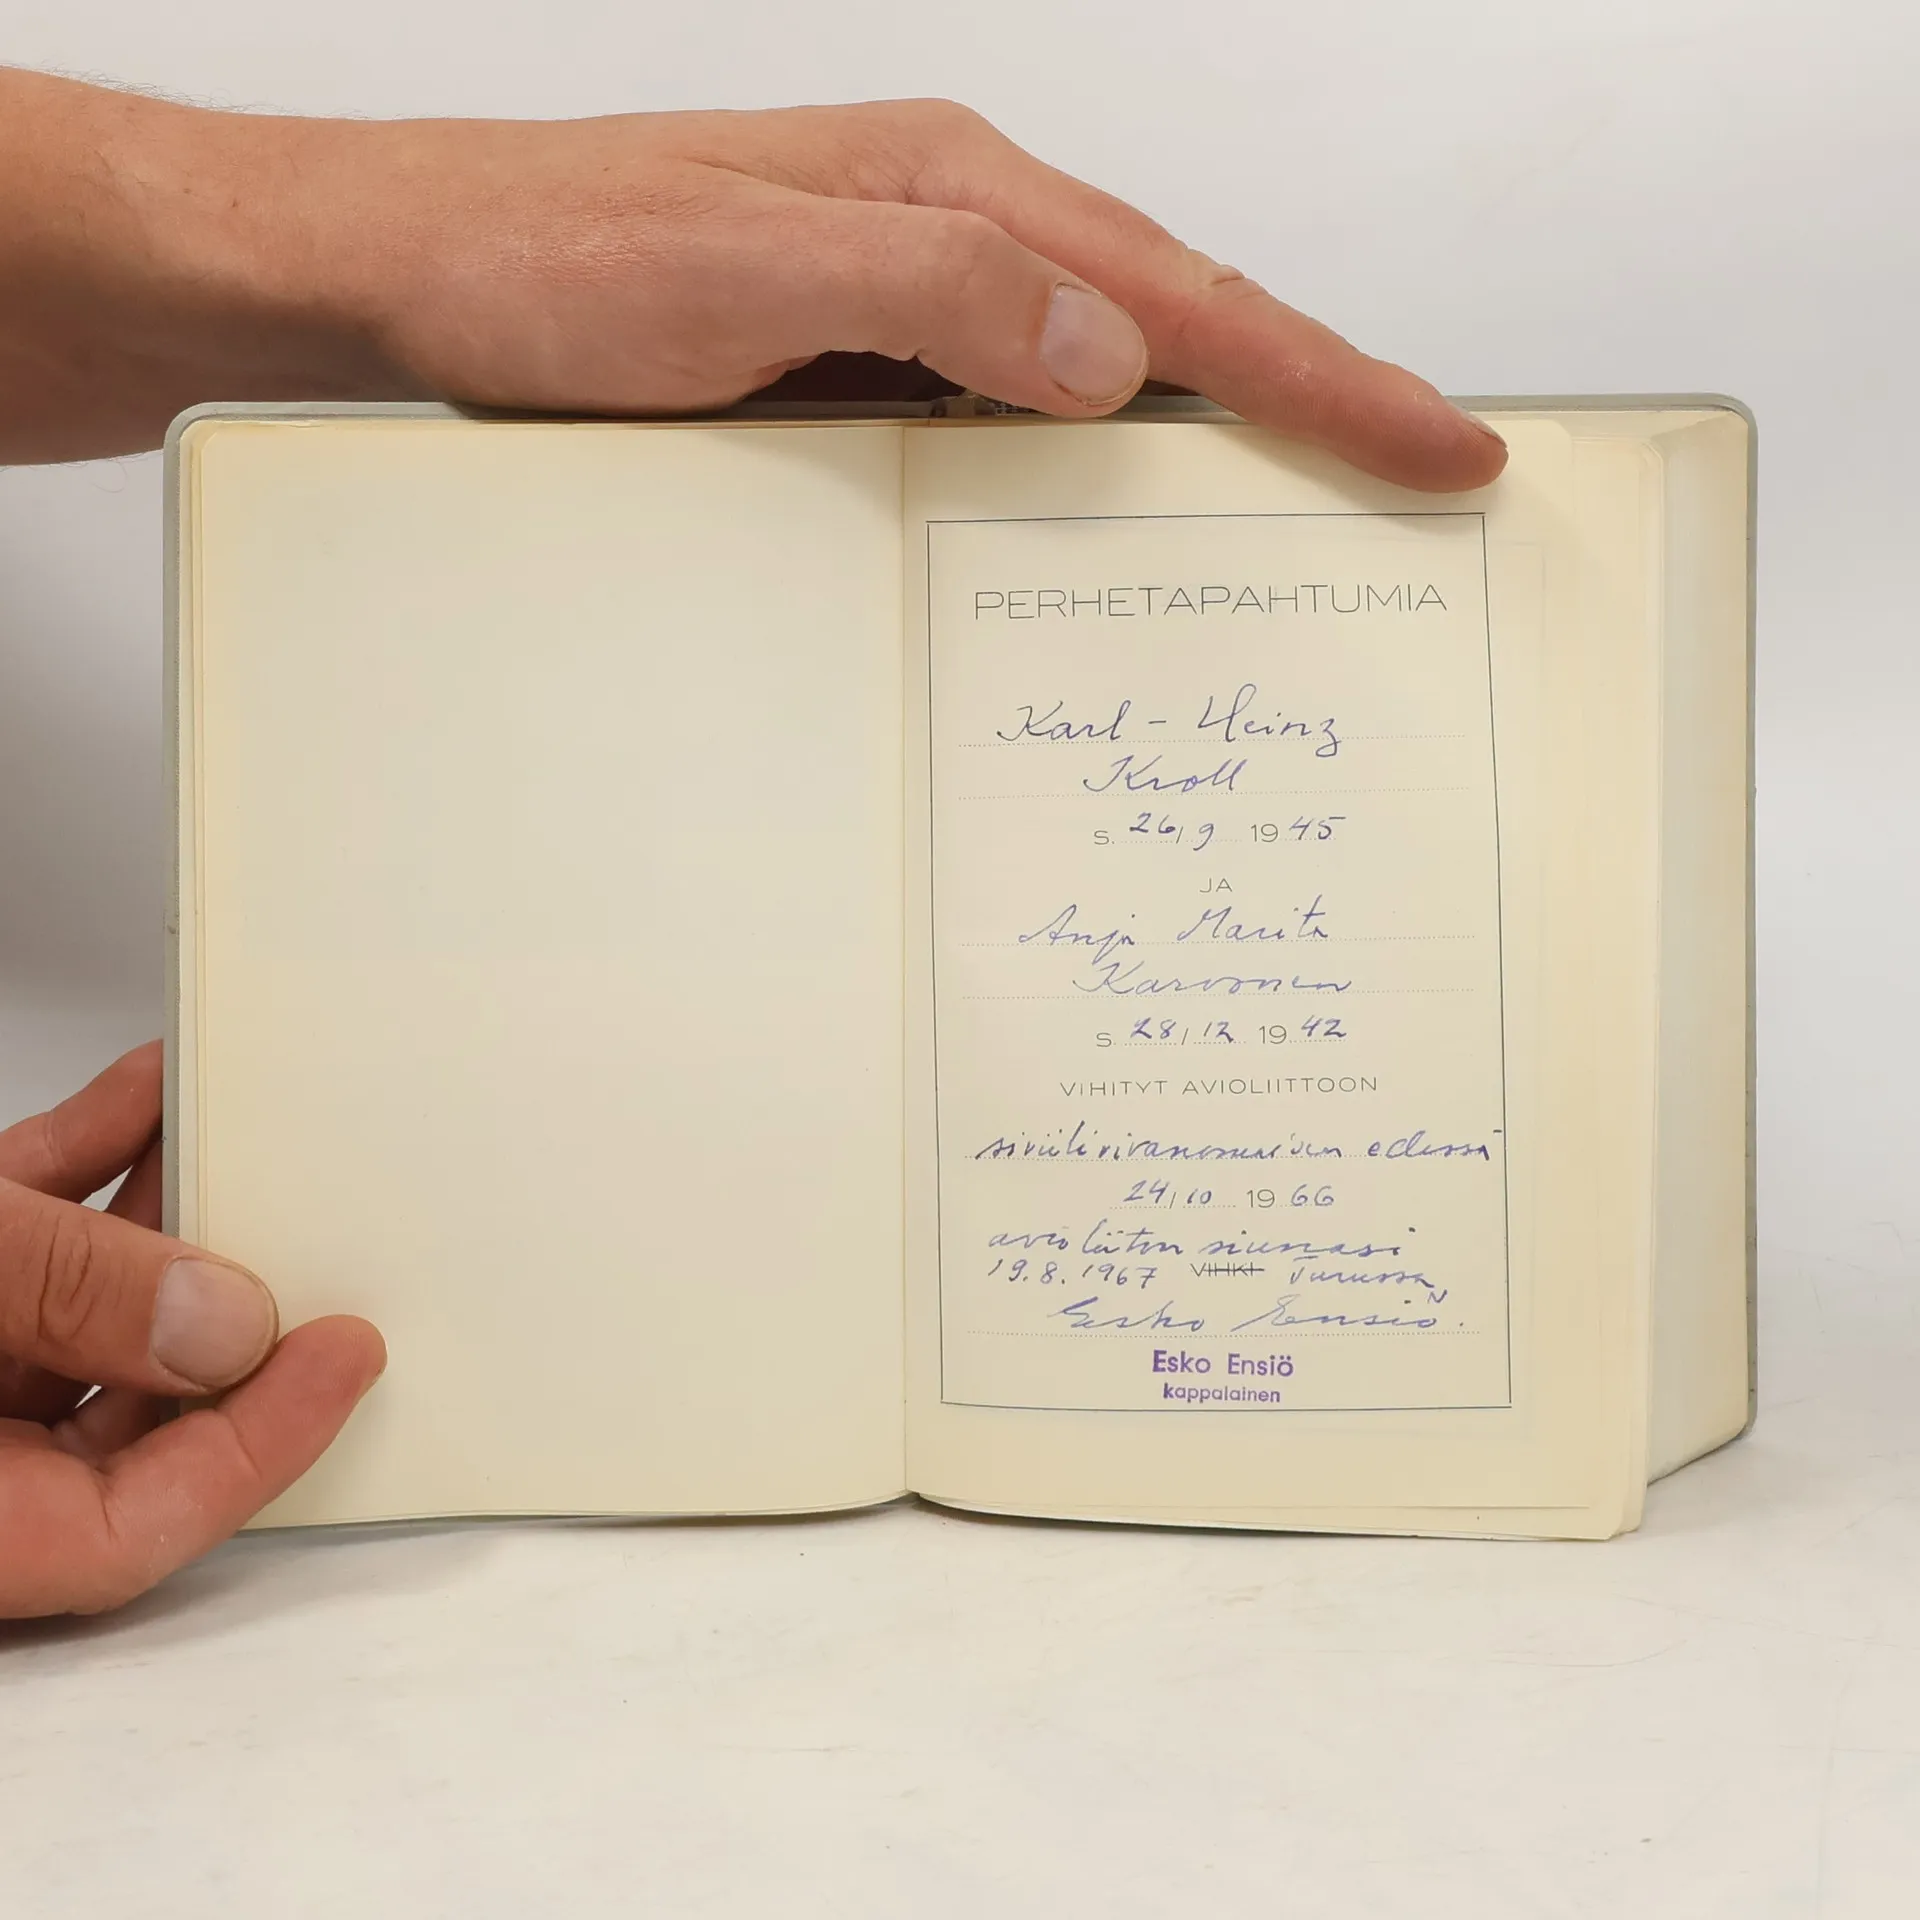 PERHETAPAHTUMIA
Karl - Heinz
Kroll
s. 26/9 1945
JA
Anja Marita
Karvonen
s. 28/12 1942
VIHITYT AVIOLIITTOON
siviiliviranomaisen edessä
24/10 1966
avioliiton siunasi
19.8.1967 VIHKI Turussa
Esko Ensiö.
Esko Ensiö
kappalainen